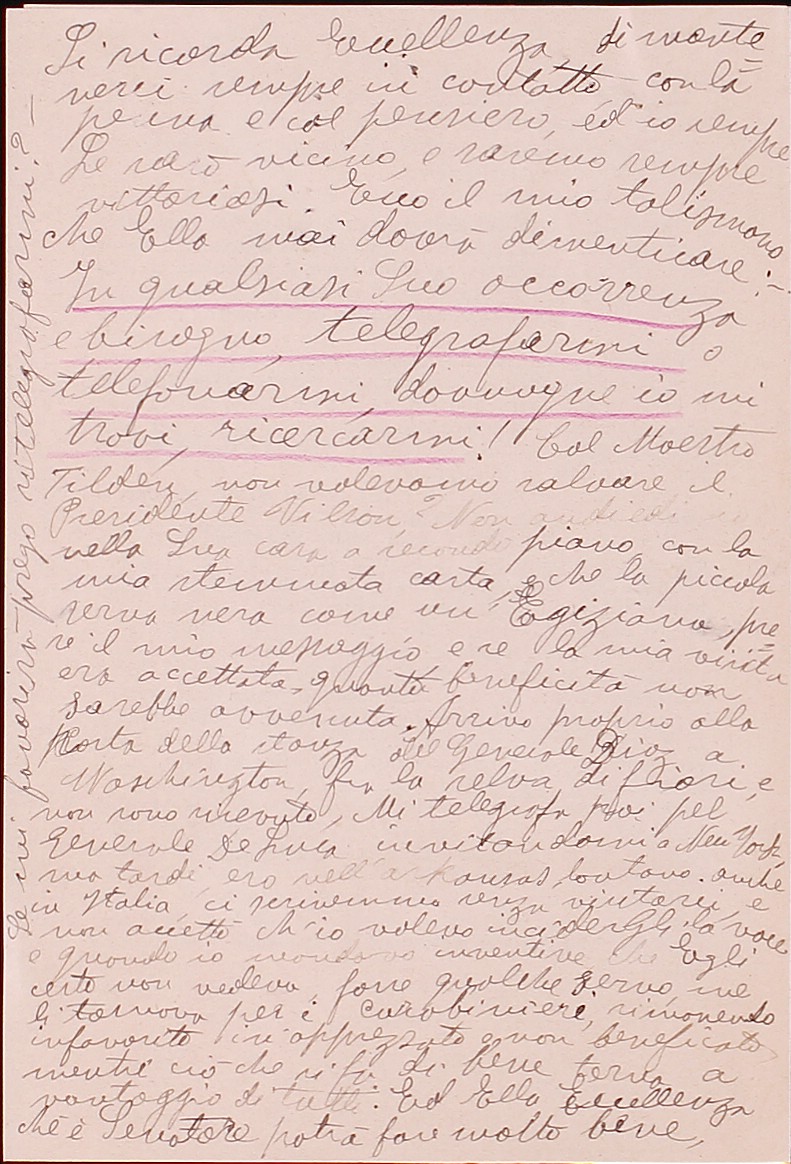 Si ricorda Eccellenza di mante=
nerci sempre in contatto con la
penna e col pensiero, ed io sempre
Le sarò vicino, e saremo sempre
vittoriosi. Ecco il mio talismano
che Ella mai dovrà dimenticare:-
In qualsiasi Suo occorrenza
e bisogno, telegrafarmi o
telefonarmi, dovunque io mi
trovi, ricercarmi! Col Maestro
Tilden, non volevamo salvare il
Presidente Vilson? Non andiedi
nella Sua casa a secondo piano, con la
mia stemmata carta, e che la piccola
serva nera come un'Egiziana, pre=
se il mio messaggio e se la mia visita
era accettata, quanta beneficità non
sarebbe avvenuta. Arrivo proprio alla
Porta della stanza del Generale Diaz a
Waschington, fra la selva di fiori, e
non sono ricevuto, Mi telegrafa poi pel
Generale De Luca invitandomi a New York,
ma tardi, ero nell'arkansas, lontano. anche
in Italia, ci scrivemmo senza visitarci, e
non accettò ch'io volevo incidergli la voce
e quando io mandavo inventive che Egli
certo non vedeva, forse qualche servo, me
li tornava per i carabinieri, rimanendo
infavorito inapprezzato e non beneficato
mentre ciò che si fa di bene torna a
vantaggio di tutti. Ed Ella Eccellenza
che è Senatore potrà fare molto bene,
Se mi favorirà prego ritelegrafarmi?-